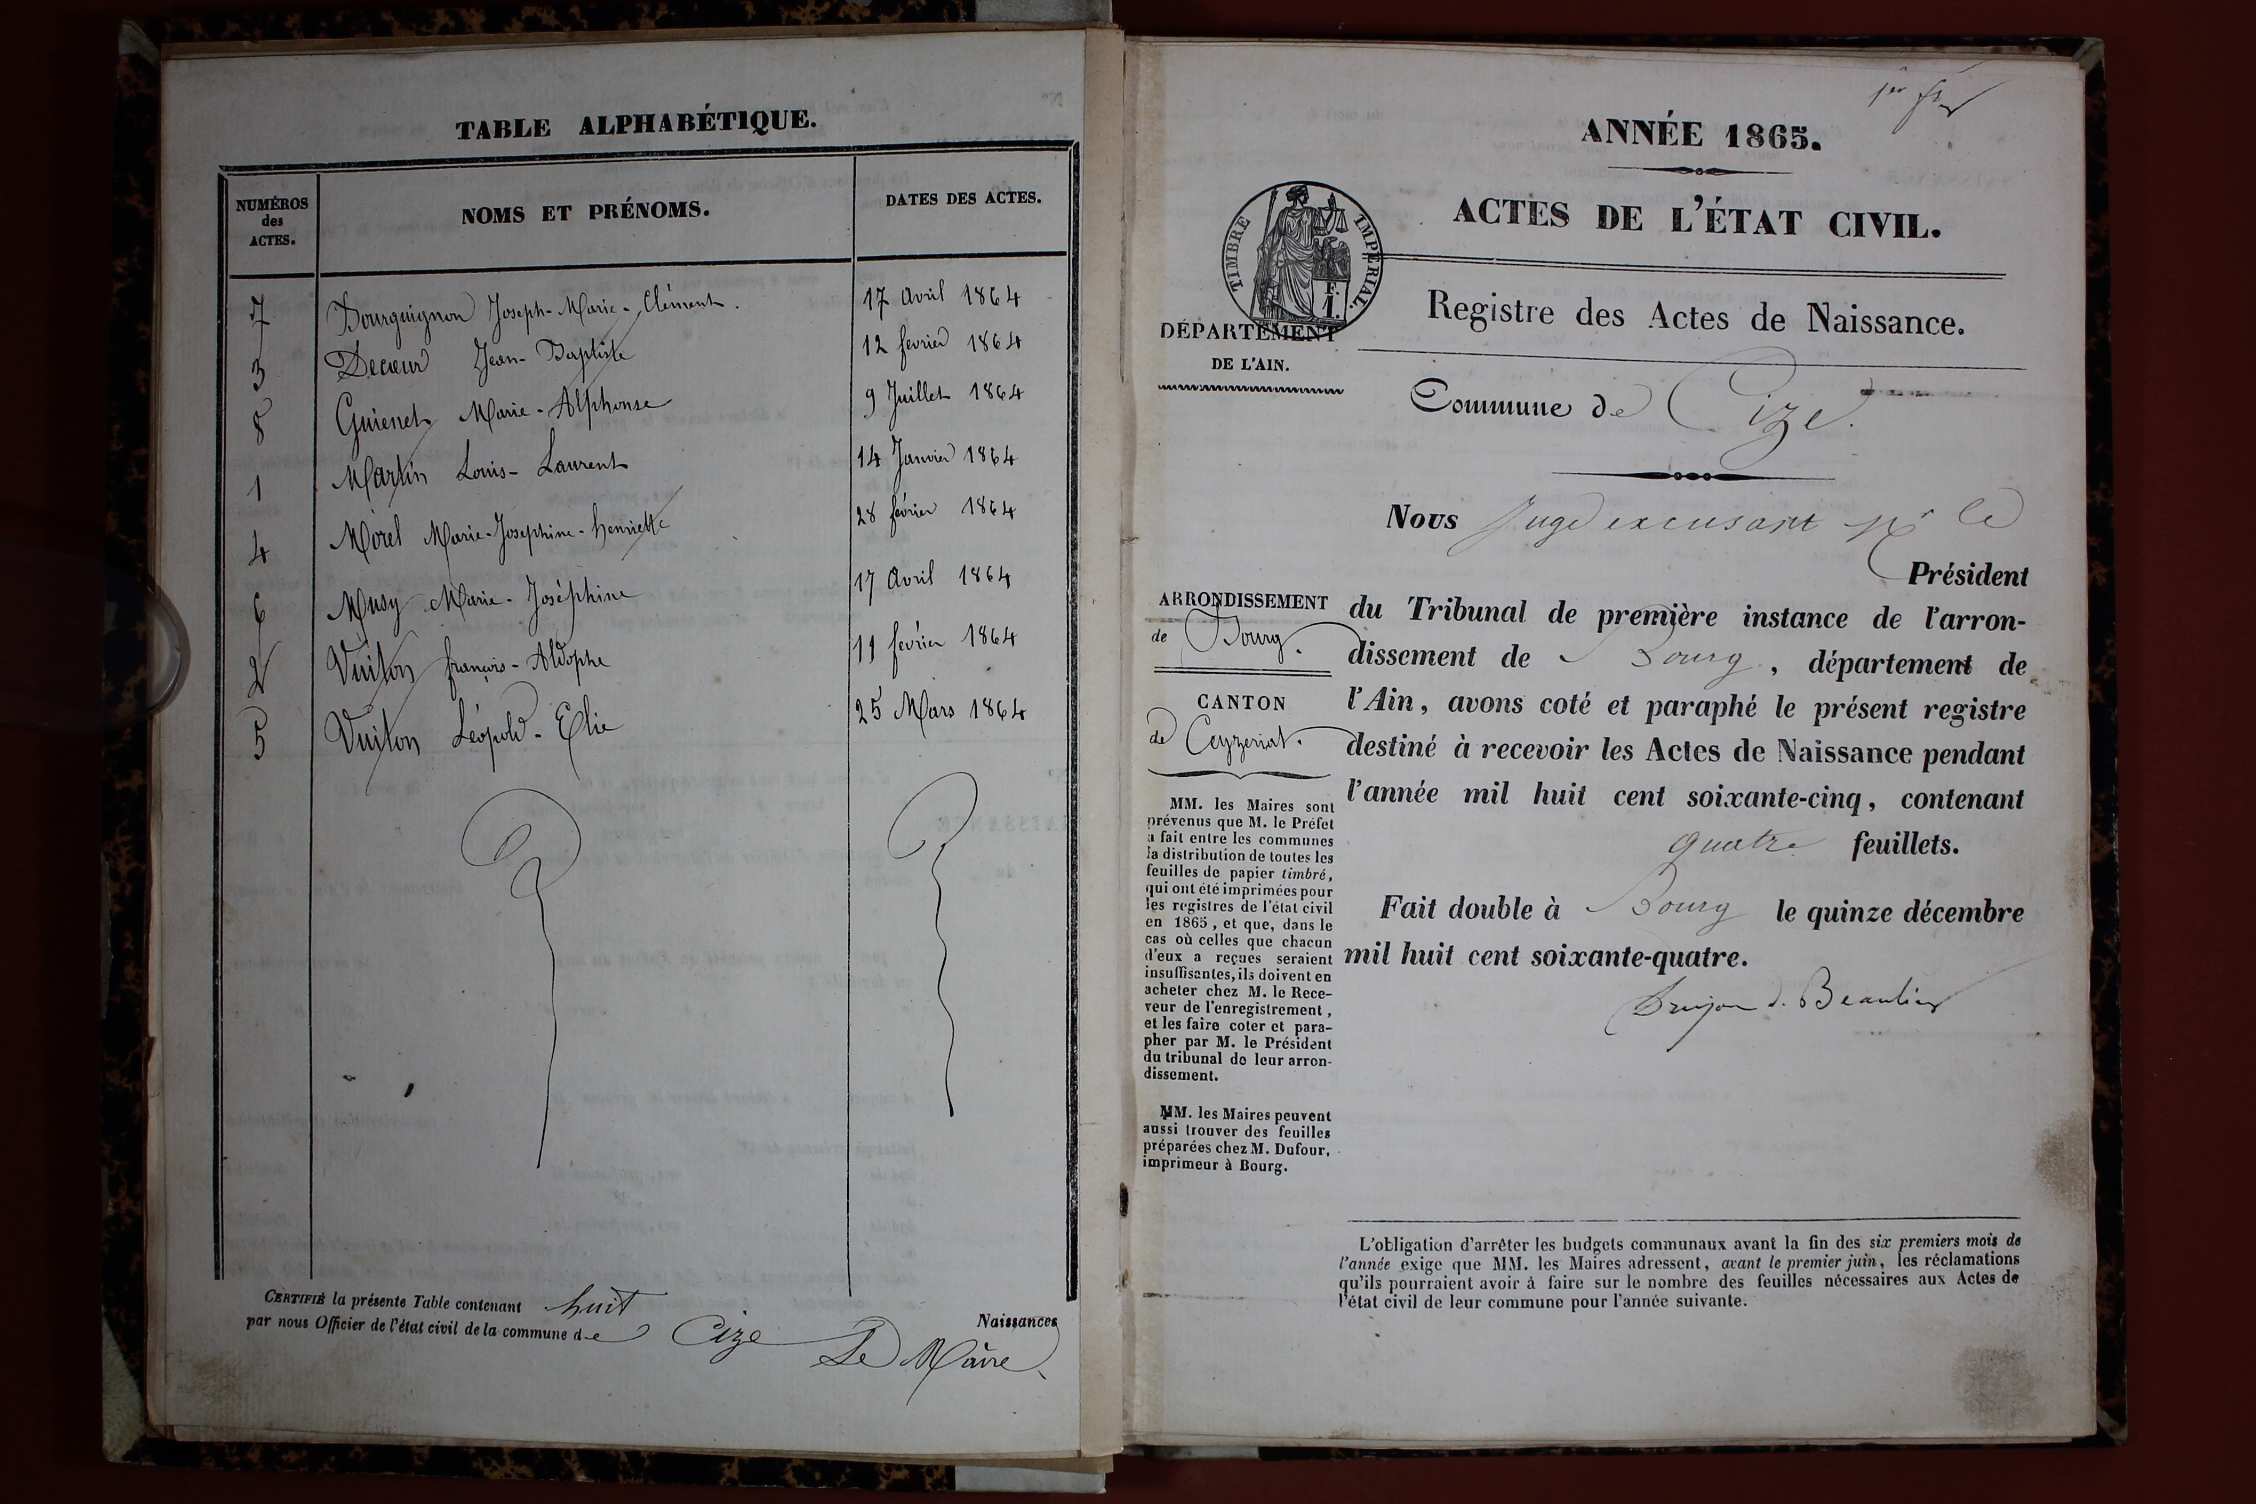 TABLE ALPHABÉTIQUE.
NUMÉROS des ACTES.
NOMS ET PRÉNOMS.
DATES DES ACTES.
7 Bourguignon Joseph-Marie-Clément. 17 Avril 1864
3 Decœur Jean-Baptiste 12 fevrier 1864
8 Guienet Marie-Alphonse 9 Juillet 1864
1 Martin Louis-Laurent 14 Janvier 1864
4 Morel Marie-Josephine-henriette 28 février 1864
6 Musy Marie-Joséphine 17 Avril 1864
2 Vuiton françois-Aldophe 11 fevrier 1864
5 Vuiton Léopold-Elie 25 Mars 1864
CERTIFIÉ la présente Table contenant huit Naissances
par nous Officier de l'état civil de la commune de Cize
Le Maire
1er
ANNÉE 1865.
ACTES DE L'ÉTAT CIVIL.
TIMBRE IMPÉRIAL.
F. 1.
Registre des Actes de Naissance.
DÉPARTEMENT
DE L'AIN.
Commune de Cize.
Nous Juge excusant pr le
Président
du Tribunal de première instance de l'arron-
dissement de Bourg, département de
l'Ain, avons coté et paraphé le présent registre
destiné à recevoir les Actes de Naissance pendant
l'année mil huit cent soixante-cinq, contenant
quatre feuillets.
Fait double à Bourg le quinze décembre
mil huit cent soixante-quatre.
Beaulieu
ARRONDISSEMENT
de Bourg.
CANTON
de Ceyzeriat.
MM. les Maires sont
prévenus que M. le Préfet
a fait entre les communes
la distribution de toutes les
feuilles de papier timbré,
qui ont été imprimées pour
les registres de l'état civil
en 1865, et que, dans le
cas où celles que chacun
d'eux a reçues seraient
insuffisantes, ils doivent en
acheter chez M. le Rece-
veur de l'enregistrement,
et les faire coter et para-
pher par M. le Président
du tribunal de leur arron-
dissement.
MM. les Maires peuvent
aussi trouver des feuilles
préparées chez M. Dufour,
imprimeur à Bourg.
L'obligation d'arrêter les budgets communaux avant la fin des six premiers mois de
l'année exige que MM. les Maires adressent, avant le premier juin, les réclamations
qu'ils pourraient avoir à faire sur le nombre des feuilles nécessaires aux Actes de
l'état civil de leur commune pour l'année suivante.